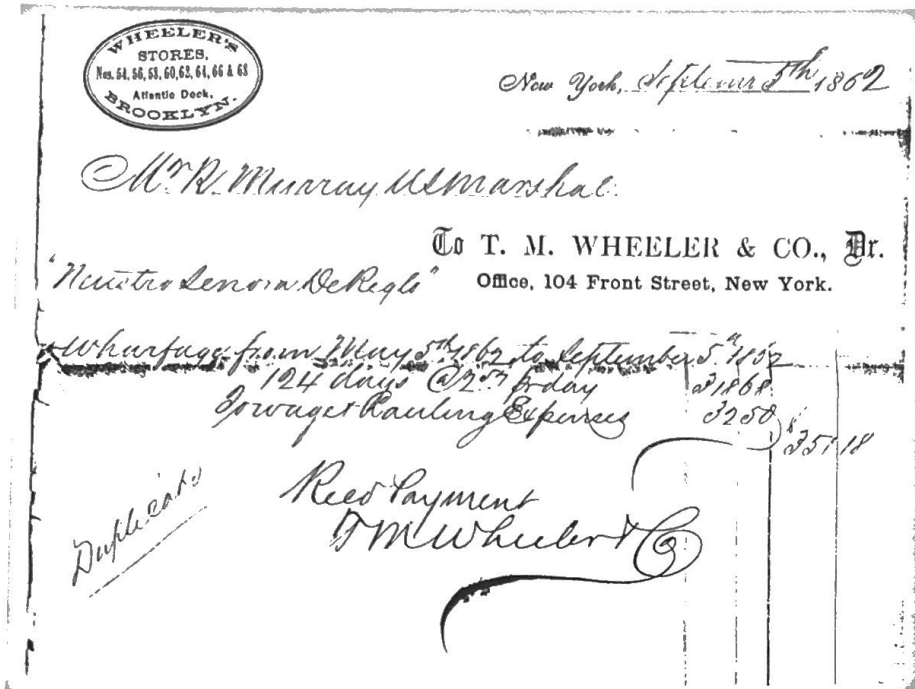 WHEELER'S
STORES,
Nos. 54, 56, 58, 60, 62, 64, 66 & 68
Atlantic Dock,
BROOKLYN.
New York, September 5th 1862
Mr R. Murray US Marshal.
To T. M. WHEELER & CO., Dr.
Office, 104 Front Street, New York.
"Nuestro Senora De Regla"
Wharfage from May 5th 1862 to September 5th 1862
124 days @ 2 57 pr day 318 68
Towage & Hauling Expenses 32 50
$351 18
Recd Payment
T M Wheeler & Co.
Duplicate